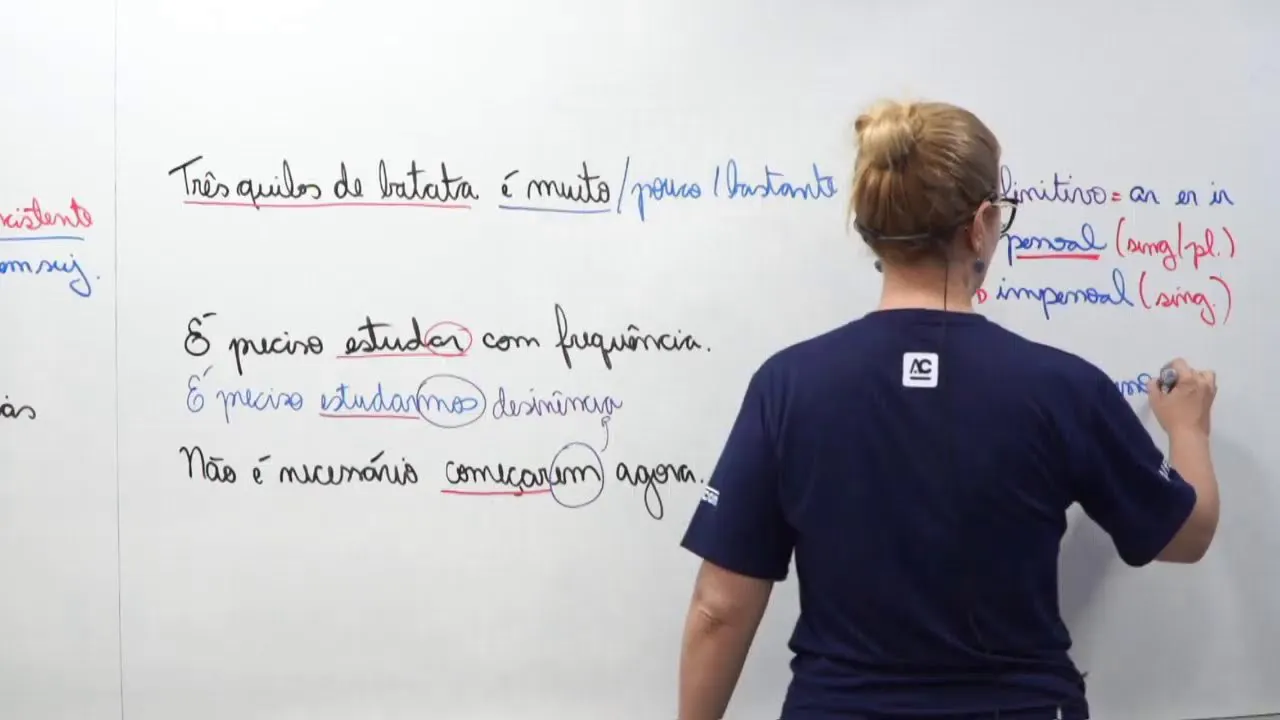 Três quilos de batata é muito / pouco / bastante
É preciso estudar com frequência.
É preciso estudarmos desinência
Não é necessário começarem agora.
xistente
om suj.
ás
finitivo = ar er ir
pessoal (sing/pl.)
impessoal (sing.)
AC